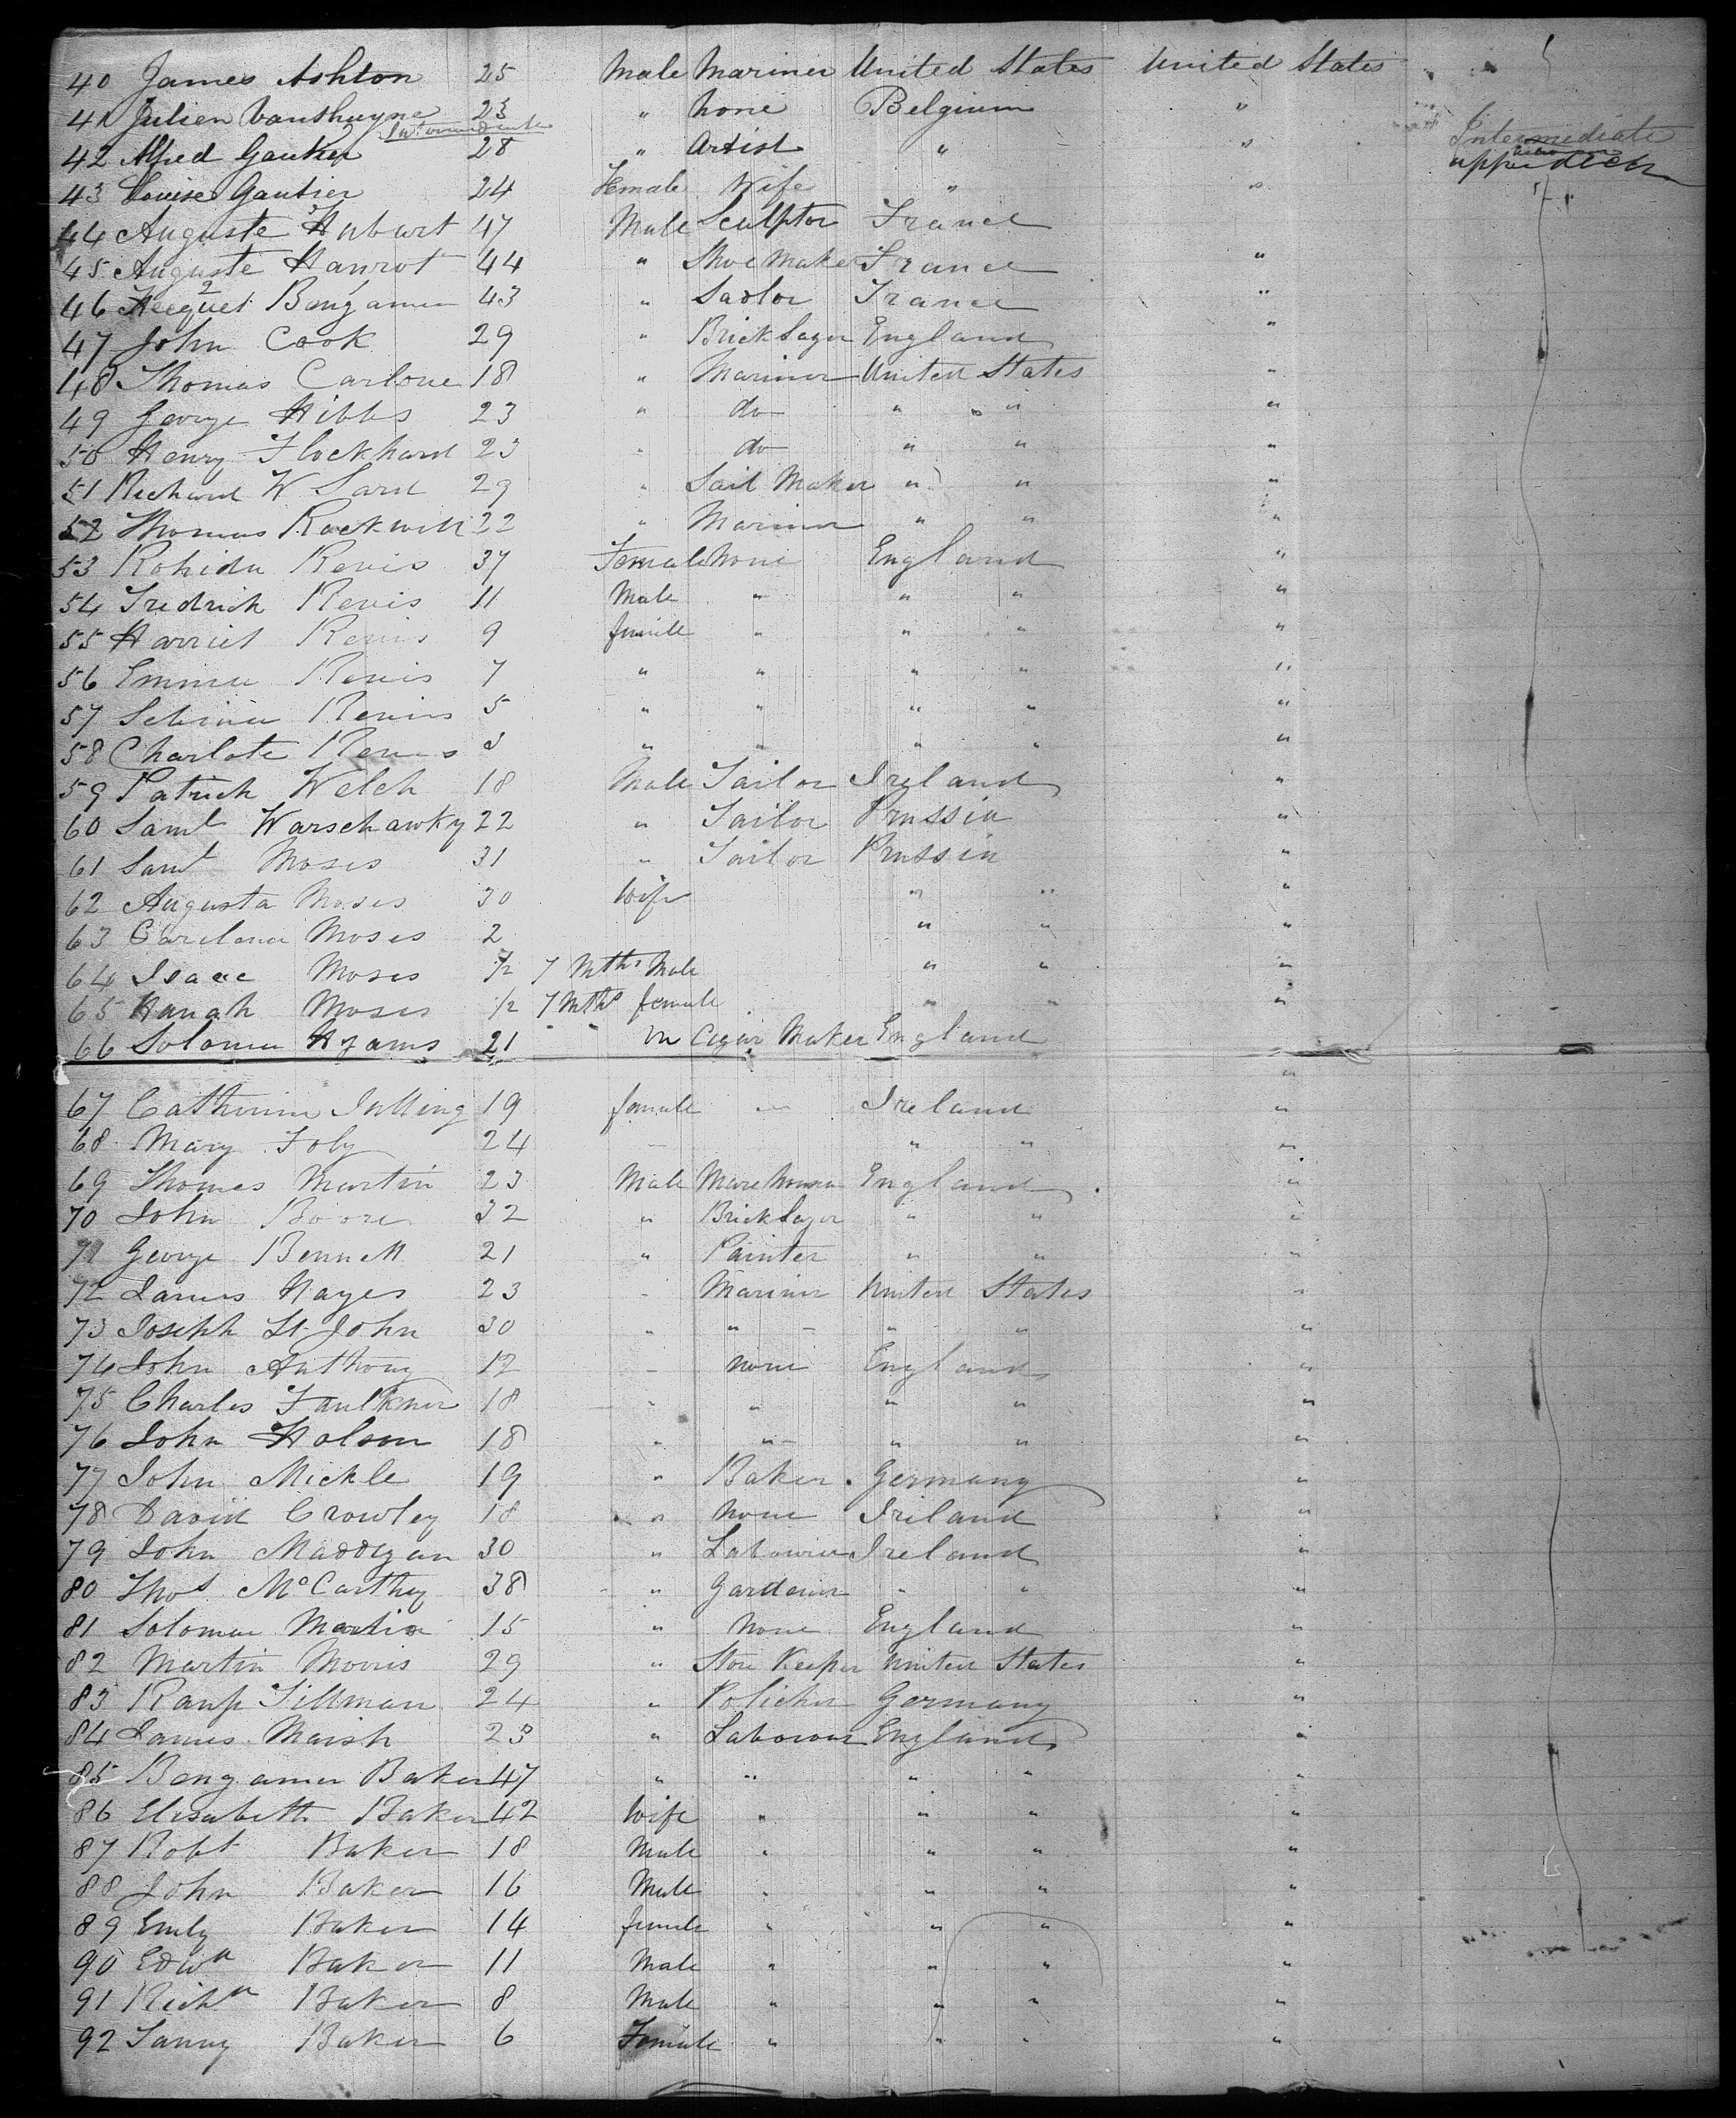 40 James Ashton 25 Male Mariner United States United States
41 Julien Vanshuyne 23 " none Belgium "
Intermediate
42 Alfred Gautier 28 " Artist " " Intermediate
upper deck
43 Louise Gautier 24 Female Wife " "
44 Auguste Hubart 47 Male Sculptor France
45 Auguste Hanrot 44 " Shoe Maker France "
46 Hecquet Benjamin 43 " Sador France "
47 John Cook 29 " Brick Layer England "
48 Thomas Carlone 18 " Mariner United States "
49 George Hibbs 23 " do " " "
50 Henry Flockhard 23 " do " " "
51 Richard W Sard 29 " Sail Maker " " "
52 Thomas Rockwell 22 " Mariner " " "
53 Revis 37 Female None England "
54 Fredrick Revis 11 Male " " " "
55 Harriet Revis 9 female " " " "
56 Emma Revis 7 " " " " "
57 Selina Revis 5 " " " " "
58 Charlote Revis 3 " " " " "
59 Patrick Welch 18 Male Tailor Ireland "
60 Saml Warschawky 22 " Tailor Prussia "
61 Saml Moses 31 " Tailor Prussia "
62 Augusta Moses 30 Wife " " "
63 Moses 2 " " "
64 Isaac Moses 7/2 7 Mths Male " " "
65 Hanah Moses 1/2 7 Mths female " " "
66 Solomon Hyams 21 m Cigar Maker England
"
67 Catherine 19 female " Ireland "
68 Mary Foly 24 " " " "
69 Thomas Martin 23 Male England "
70 John Boore 32 " Brick Layer " " "
71 George Bennett 21 " Painter " " "
72 James Hayes 23 " Mariner United States "
73 Joseph St John 30 " " " " "
74 John Anthony 17 " none England "
75 Charles Faulkner 18 " " " " "
76 John Holson 18 " " " " "
77 John Mickle 19 " Baker Germany "
78 David Crowley 18 " none Ireland "
79 John Maddigan 30 " Labourer Ireland "
80 Thos McCarthy 38 " Gardener " " "
81 Soloman Martin 15 " None England "
82 Martin Morris 29 " Store Keeper United States "
83 Tillman 24 " Polisher Germany "
84 James Marsh 23 " Labourer England "
85 Bengamen Baker 47 " " " " "
86 Elisabeth Baker 42 Wife " " " "
87 Robt Baker 18 Male " " " "
88 John Baker 16 Male " " " "
89 Emily Baker 14 female " " " "
90 Edwd Baker 11 Male " " " "
91 Richd Baker 8 Male " " " "
92 Fanny Baker 6 Female " " " "